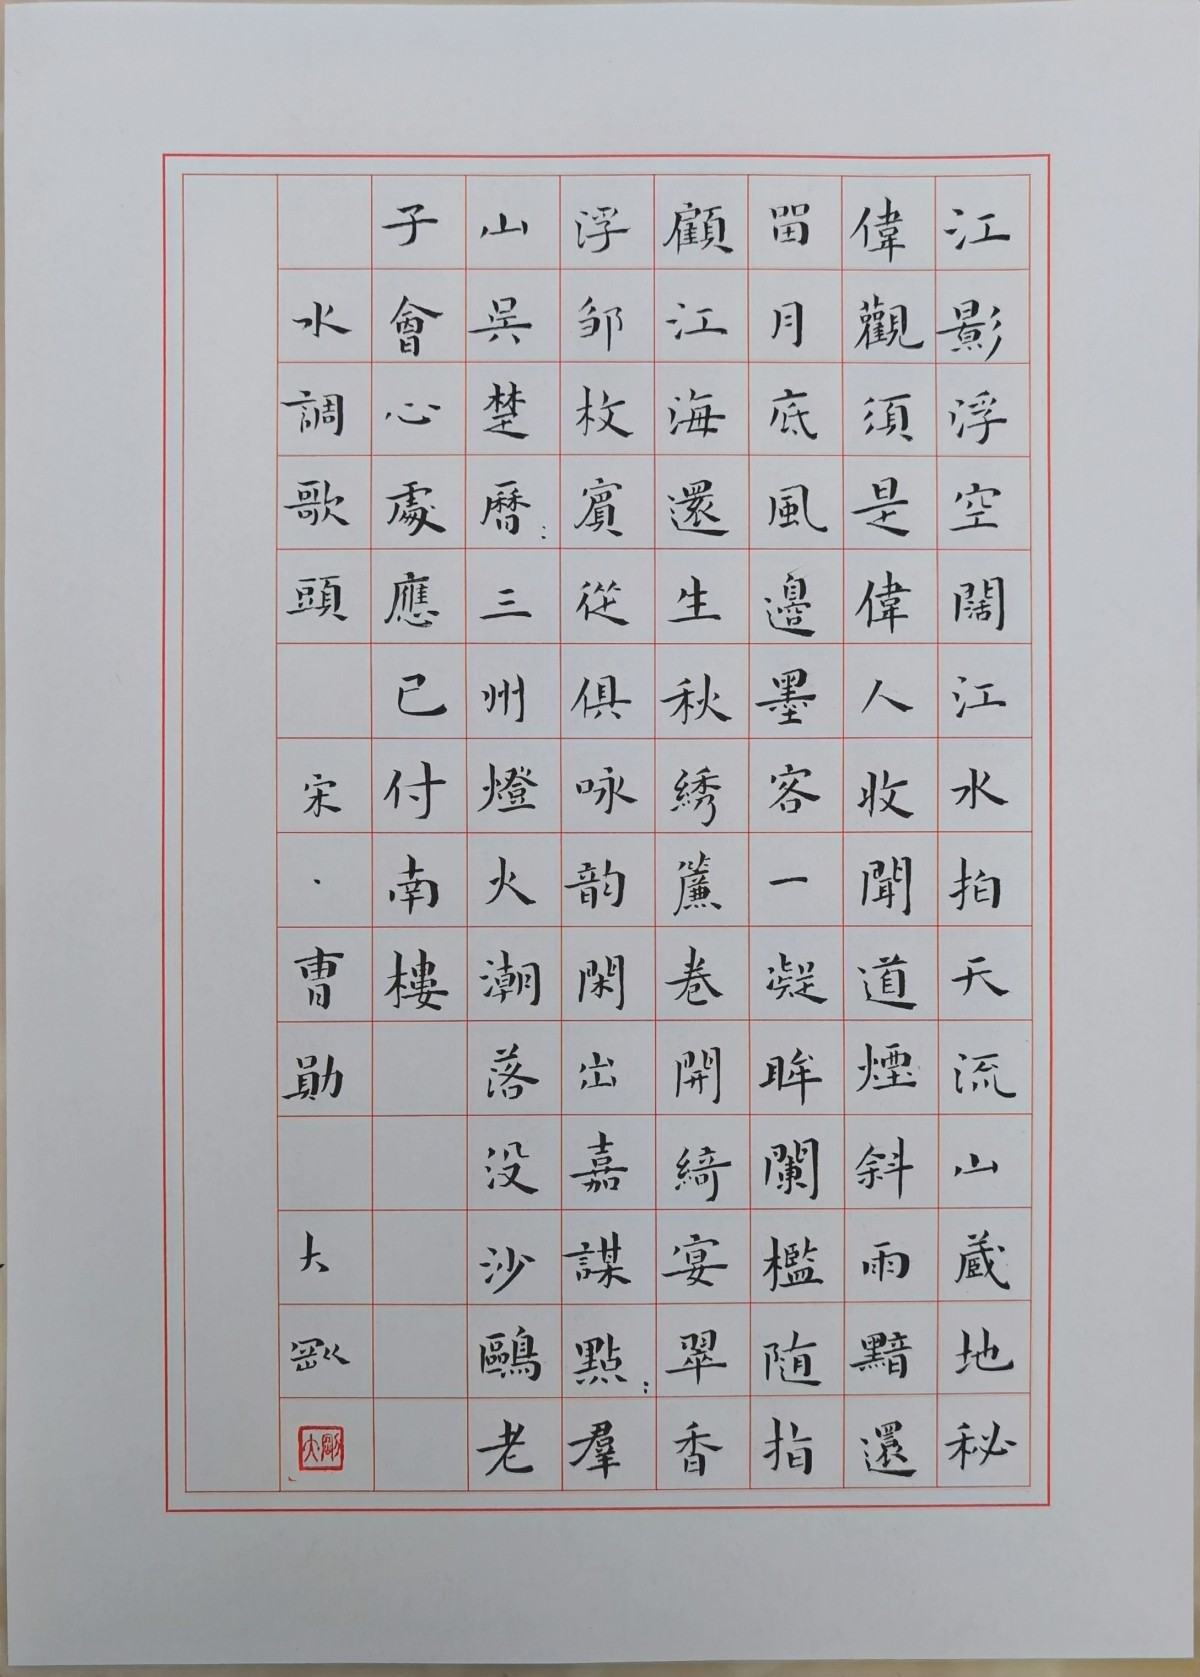 江影浮空闊江水拍天流山蔵地秘
偉觀須是偉人收聞道煙斜雨黯還
畱月底風邊墨客一凝眸闌檻随指
顧江海還生秋綉簾卷開綺宴翠香
浮邹枚賓從俱咏韵閑出嘉謀點羣
山吴楚曆三州燈火潮落没沙鷗老
子會心處應已付南樓
水調歌頭 宋·曹勛 大剛
大剛